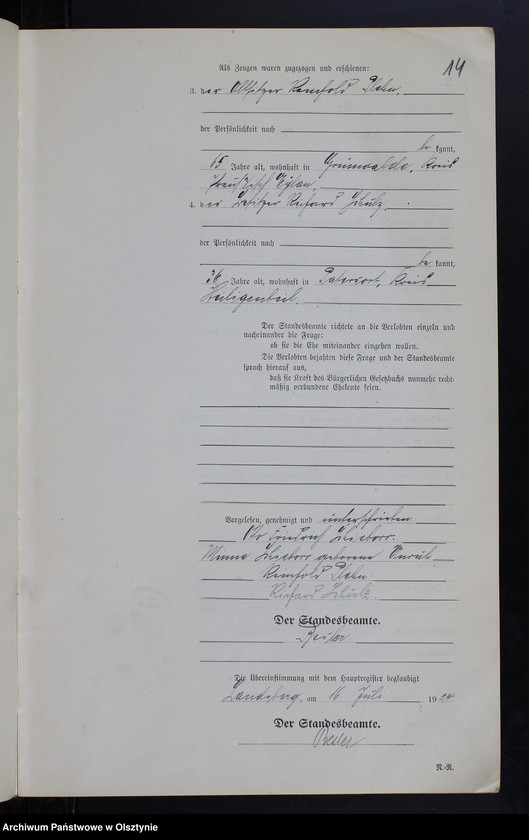 14
Als Zeugen waren zugezogen und erschienen:
3. der Altsitzer Reinhold
der Persönlichkeit nach
be kannt,
65 Jahre alt, wohnhaft in Grünwalde, Kreis
Preußisch Eylau.
4. der Besitzer Richard Schulz.
der Persönlichkeit nach
be kannt,
36 Jahre alt, wohnhaft in Kreis
Heiligenbeil.
Der Standesbeamte richtete an die Verlobten einzeln und
nacheinander die Frage:
ob sie die Ehe miteinander eingehen wollen.
Die Verlobten bejahten diese Frage und der Standesbeamte
sprach hierauf aus,
daß sie kraft des Bürgerlichen Gesetzbuchs nunmehr recht-
mäßig verbundene Eheleute seien.
Vorgelesen, genehmigt und unterschrieben
Friedrich
Minna geborene
Reinhold
Richard Schulz.
Der Standesbeamte.
Die Übereinstimmung mit dem Hauptregister beglaubigt
Landsberg, am 16 Juli 19
Der Standesbeamte.
N.-R.
Archiwum Państwowe w Olsztynie